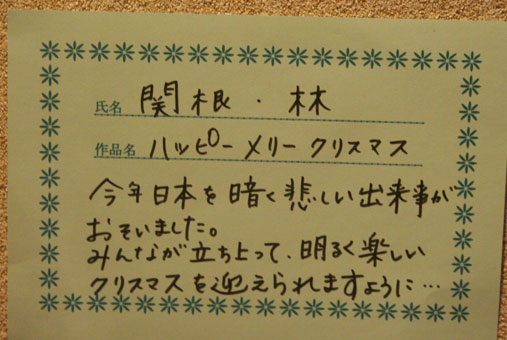 氏名 関根・林
作品名 ハッピーメリークリスマス
今年日本を暗く悲しい出来事が
おそいました。
みんなが立ち上って、明るく楽しい
クリスマスを迎えられますように…